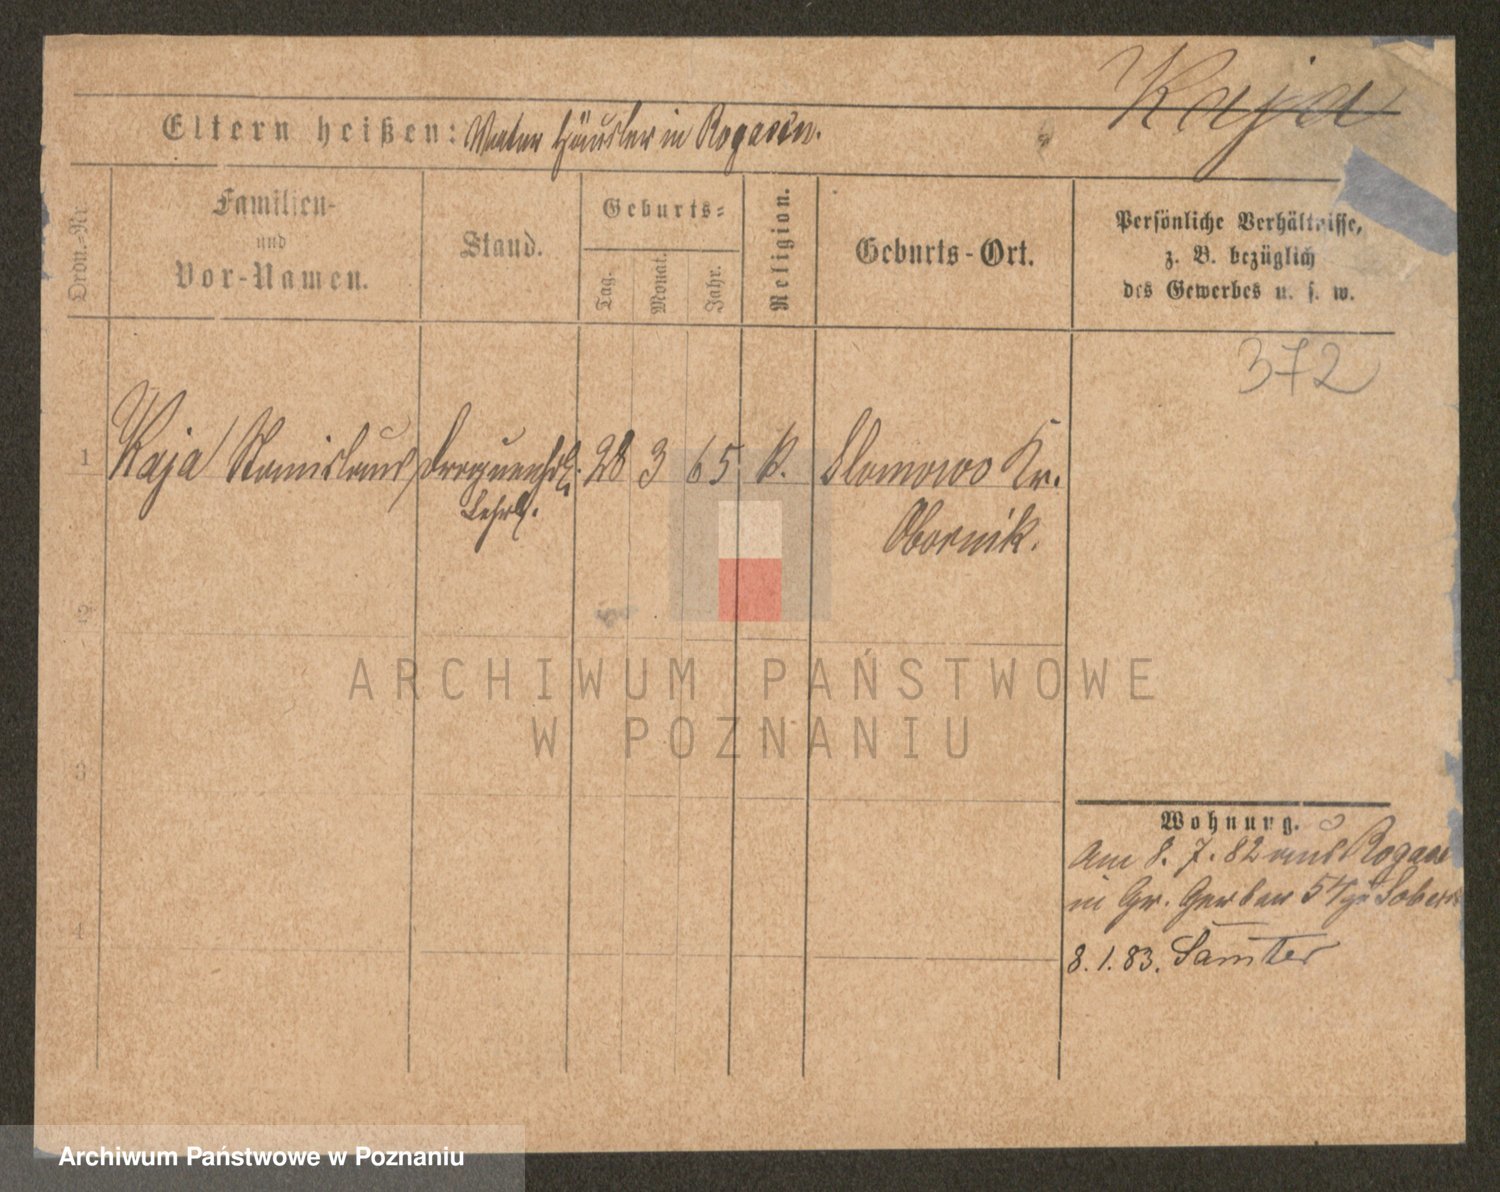 Kaja
Eltern heißen: Vater Häusler in Rogasen.
Ordn.=Nr.
Familien-
und
Vor-Namen.
Stand.
Geburts=
Tag.
Monat.
Jahr.
Religion.
Geburts-Ort.
Persönliche Verhältnisse,
z. B. bezüglich
des Gewerbes u. s. w.
372
1 Kaja Stanislaus 28 3 65 k. Slomowo Kr.
Lehrl. Obornik.
2
3
4
ARCHIWUM PAŃSTWOWE
W POZNANIU
Wohnung.
Am 8. 7. 82 aus Rogasen
in Gr. Gerber 54
8.1.83. Samter
Archiwum Państwowe w Poznaniu